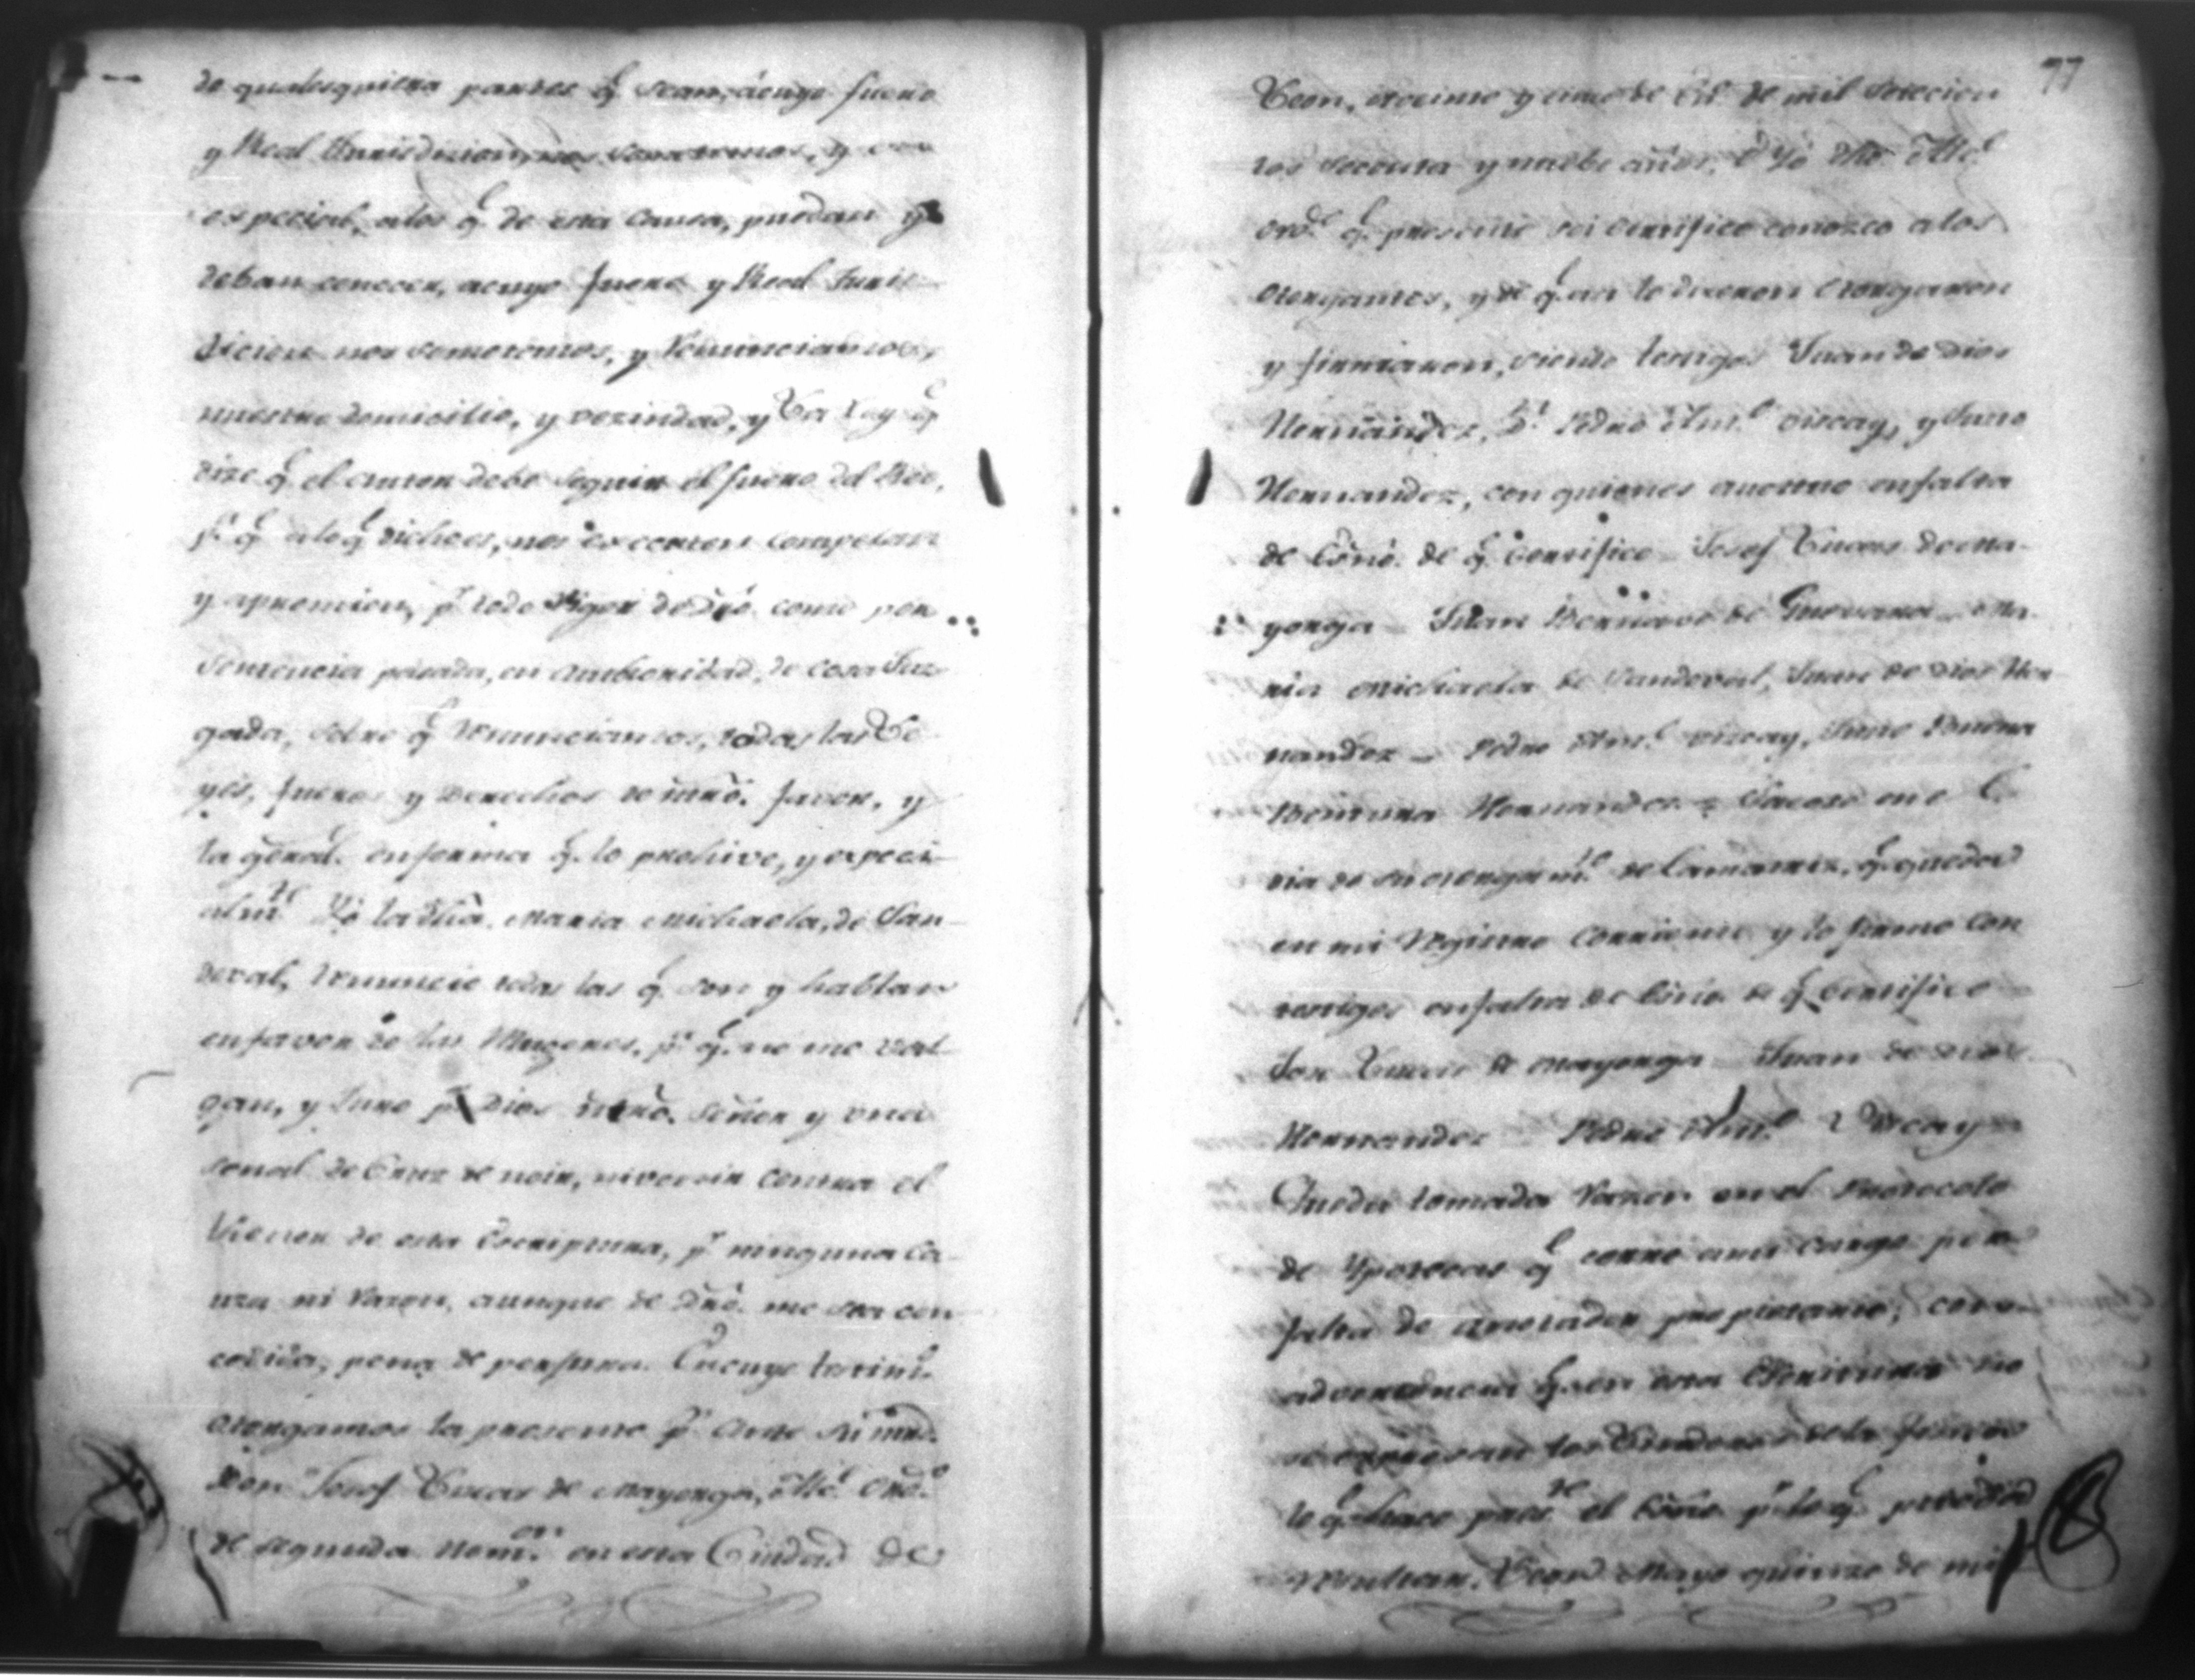 de qualesquiera partes q.e sean, á cuyo fuero
y Real Jurisdizion, nos sometemos, y con
especial, alos q.e de esta causa, puedan y
deban conocer, acuyo fuero y Real Juris
dicion nos sometemos, y Renunciamos,
nuestro domicilio, y vezindad, y La Ley q.e
dize q.e el Autor debe seguir el fuero del Reo,
p.a q.e alo q.e dicho es, nos executen compelan
y apremien, p.r todo Rigor de dr̃o. como por
Sentencia pasada, en Authoridad, de cosa Juz
gada, sobre q.e Renunciamos, todas las Le
yes, fueros y Derechos de nr̃o. favor, y
la gēral. en forma q.e lo prohive, y especi
alm.te Yo la dha. Maria Michaela, de San
doval, Renuncio todas las q.e son y hablan
en favor de las Mugeres, p.a q.e no me val
gan, y Juro p.r Dios nr̃o. Señor y una
señal de Cruz de no ir, ni venir contra el
thenor de esta Escriptura, p.r ninguna ca
usa ni Razon, aunque de dr̃o. me sea con
cedida, pena de perjura. En cuyo testim.o
otorgamos la presente p.r ante su mrd.
Don Josef Lucas de Mayorga, Alc.e Ord.o
de segunda Nom.on en esta Ciudad de
77
Leon, en cinco de de mil setecien
tos setenta y nuebe años. E Yo dho. Alc.e
ord.o q.e presente fui Certifico conozco alos
Otorgantes, y de q.e asi lo dixeron otorgaron
y firmaron, siendo testigos Juan de Dios
Hernández, Pedro Ant.o Viscay, y Juan
Hernandez, con quienes actuo en falta
de Esño. de q.e Certifico Josef Lucas de Ma
yorga Juan Bernavé de Guevara Ma
ria Michaela de Sandoval, Juan de Dios Her
nandez Pedro Ant.o Viscay, Buena
Bentura Hernandez
dia de su otorgam.to de la matriz, q.e queda
en mi Registro Corriente y lo firmo con
testigos en falta de Esño. de q.e Certifico
Jose Lucas de Mayorga Juan de Dios
Hernandez Pedro Ant.o Viscay
Queda tomada Razon en el Protocolo
de Ypotecas q.e corre a mi cargo por
falta de anotador propietario; con
advertencia q.e en esta Escritura no
se expresan los Linderos de la finca
lo q.e hace pres.te el Esño. p.r lo q.e pueda
Resultar. Leon Mayo quinze de mil